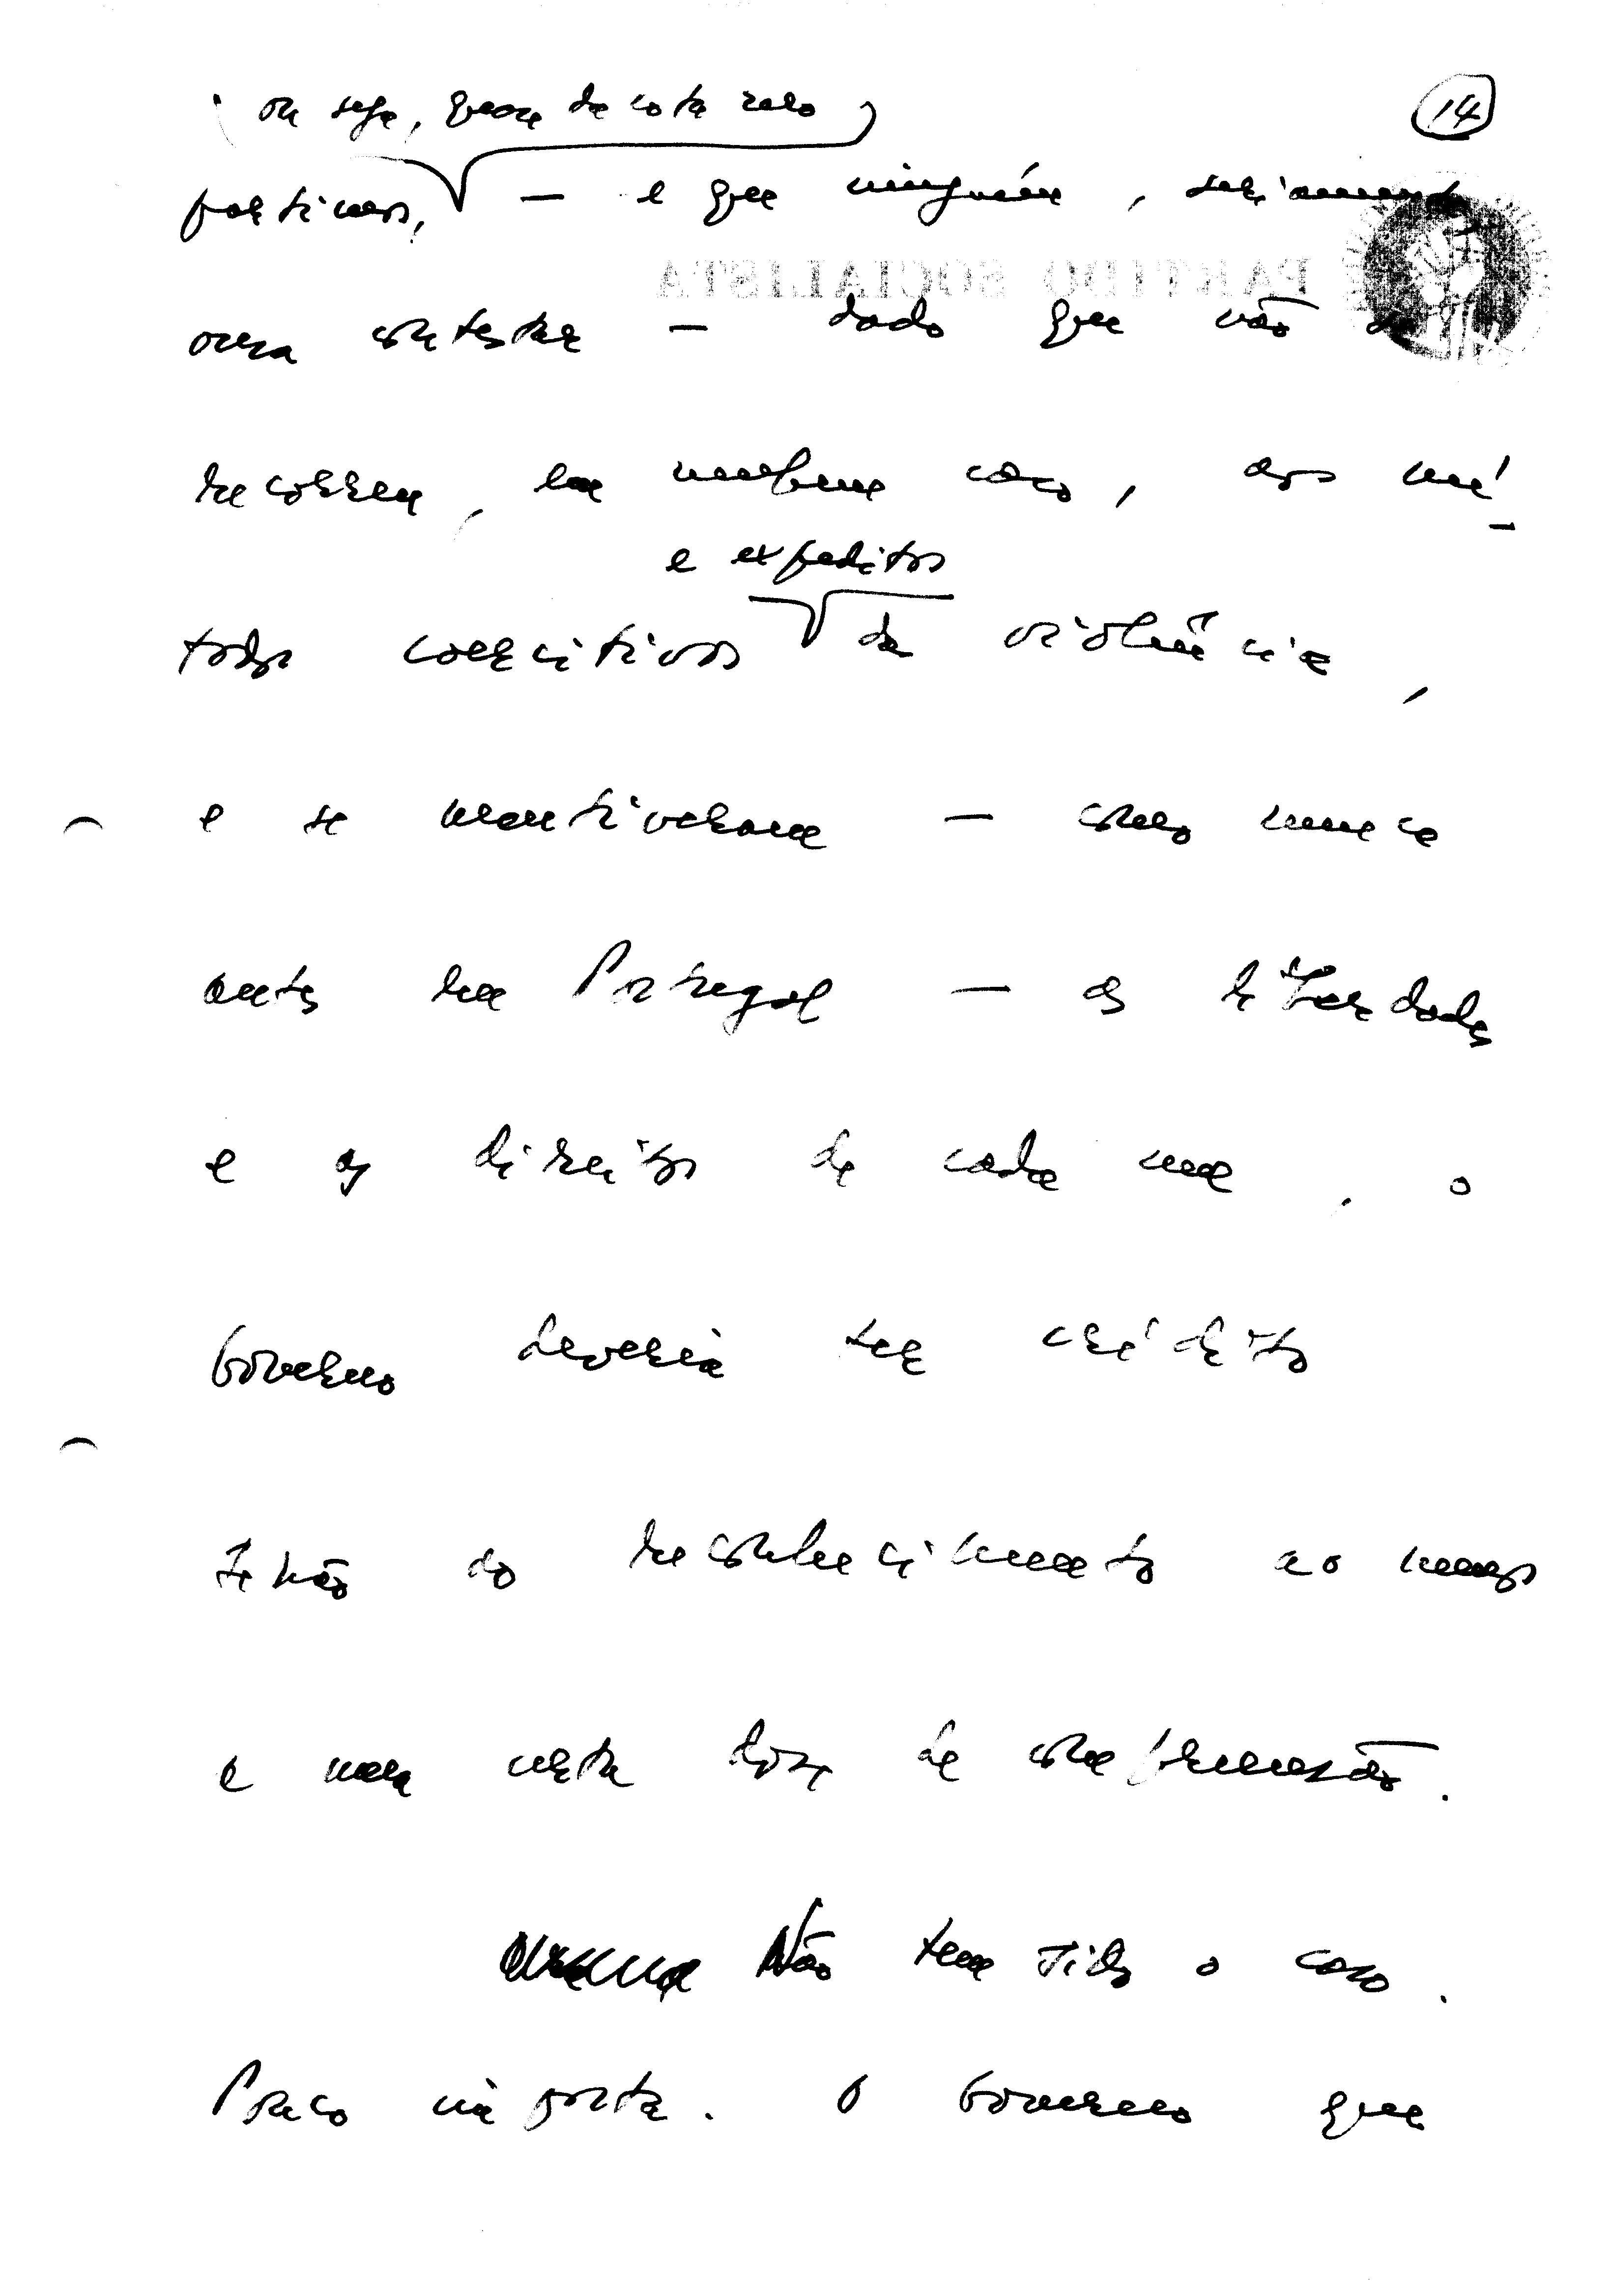 (ou seja, quem dê a cota zero)
14
políticos, — e que ninguém, seriamente
PARTIDO SOCIALISTA
ousa contestar — dado que não se
recorreu, em nenhum caso, aos mé-
e expeditos
todos coercitivos da violência,
e se mantiveram — como nunca
antes em Portugal — as liberdades
e os direitos de cada um, o
Governo deveria ter crédito
senão do reconhecimento ao menos
e uma certa dose de compreensão.
Não tem sido o caso.
Pouco importa. O Governo que